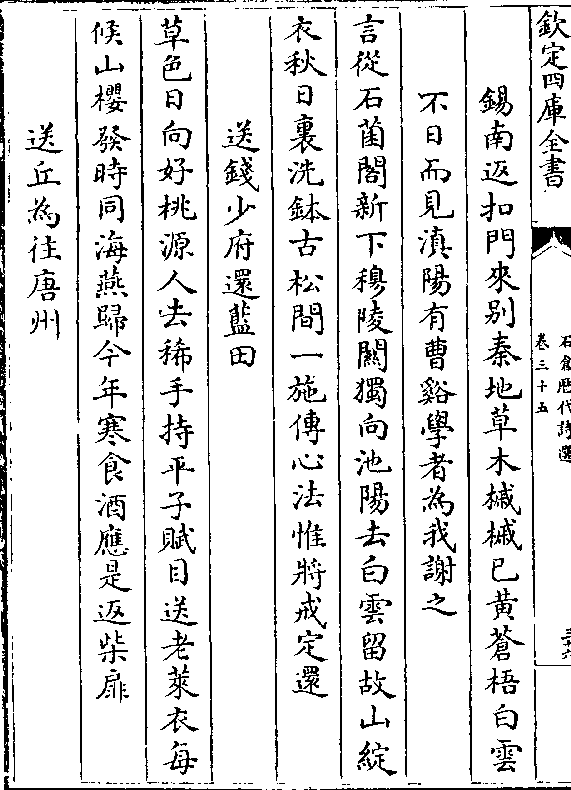 欽定四庫全書
石倉歷代詩選
卷三十五
錫南返扣門來别秦地草木槭槭已黃蒼梧白雲
不日而見滇陽有曹谿學者為我謝之
言從石菌閣新下穆陵關獨向池陽去白雲留故山綻
衣秋日裏洗鉢古松間一施傳心法惟將戒定還
送錢少府還藍田
草色日向好桃源人去稀手持平子賦目送老萊衣每
候山櫻發時同海燕歸今年寒食酒應是返柴扉
送丘為往唐州